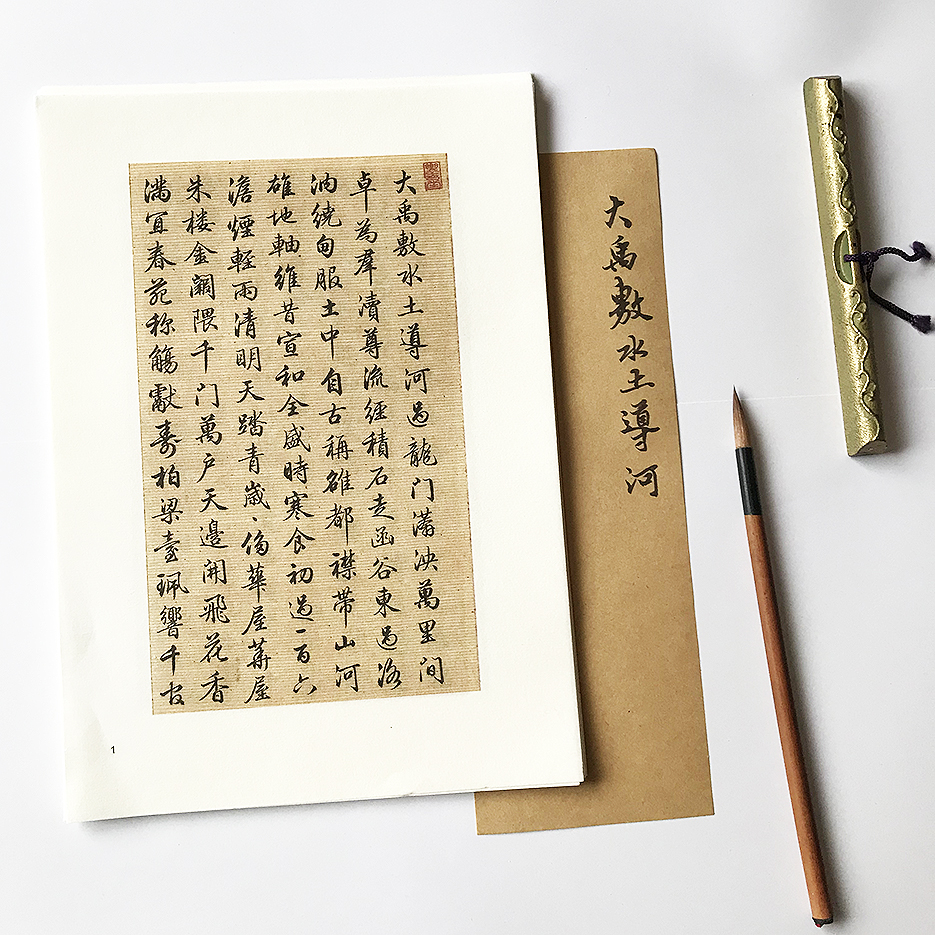 大禹敷水土導河過龍门滿泱萬里间
卓為羣瀆尊流經積石走函谷東過洛
汭繞甸服土中自古稱雒都襟帶山河
雄地軸維昔宣和全盛時寒食初過一百六
澹煙輕雨清明天踏青歲〻侈華屋華屋
朱楼金闕隈千门萬户天邊開飛花香
滿宜春苑称觴獻壽柏梁臺珮響千官
1
大禹敷水土導河